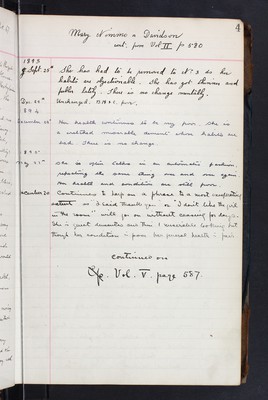 4
Mary Nimmo or Davidson
cont. from Vol II p 580
1893
Sept. 25th She has had to be removed to No 3 as her
habits are objectionable. She has got thinner and
feebler lately. There is no change mentally.
Dec. 26th Unchanged.
1894
December 26th Her health continues to be very poor. She is
a wretched miserable dement whose habits are
bad. There is no change.
1895
She is often talks in an automatic fashion,
repeating the same thing over and over again.
Her health and condition are still poor.
December 30 Continues to keep on a phrase to a most
extent as "I said thank you" or "I don't like the girl
in the room" will go on without ceasing for days.
She is quiet demented and thin & miserable looking but
though her condition is poor her general health is fair
continued on
Vol. V. page 587.